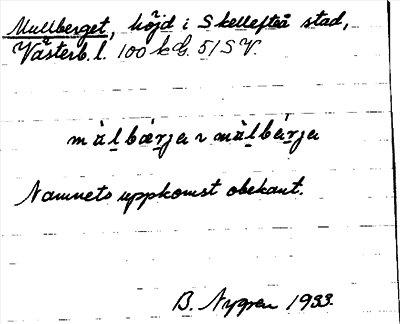 Mullberget, höjd i Skellefteå stad,
Västerb. l. 100 k G. 51 S V.
målbærja ~ målbárja
Namnets uppkomst obekant.
B. Nygren 1933.